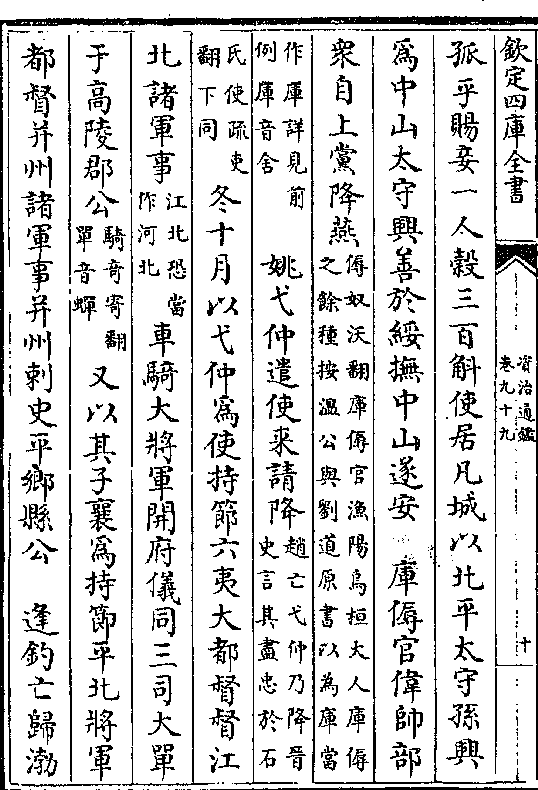 欽定四庫全書
資治通鑑
卷九十九
十
孤乎賜妾一人穀三百斛使居凡城以北平太守孫興
為中山太守興善於綏撫中山遂安 庫傉官偉帥部
衆自上黨降燕傉奴沃翻庫傉官漁陽烏桓大人庫傉
之餘種按溫公與劉道原書以為庫當
作庫詳見前
例庫音舍 姚弋仲遣使來請降趙亡弋仲乃降晉
史言其盡忠於石
氏使疏吏
翻下同 冬十月以弋仲為使持節六夷大都督督江
北諸軍事江北恐當
作河北 車騎大將軍開府儀同三司大單
于高陵郡公騎奇寄翻
單音蟬 又以其子襄為持節平北將軍
都督并州諸軍事并州刺史平鄉縣公 逢釣亡歸渤